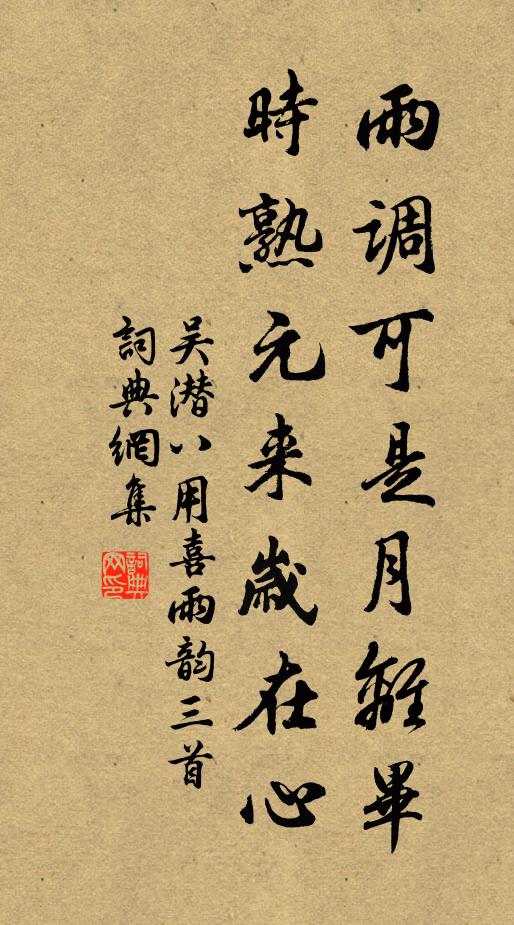 雨调可是月離畢
時熟元来歲在心
吴潜八用喜雨韵三首
詞典網集
詞典网印